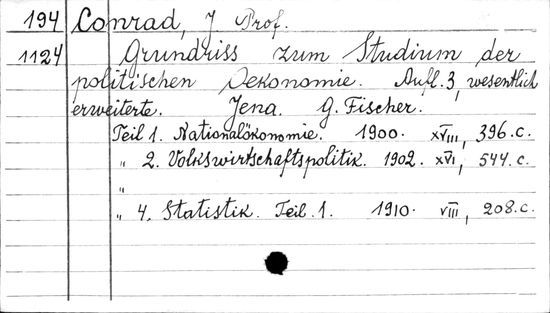 194 Conrad, J Prof.
1124 Grundriss zum Studium der
politischen Oekonomie. Aufl. 3, wesentlich
erweiterte. Jena. G. Fischer.
Teil 1. Nationalökonomie. 1900. XVIII, 396.c.
" 2. Volkswirtschaftspolitik. 1902. XVI, 544.c.
"
" 4. Statistik. Teil. 1. 1910. VIII, 208.c.